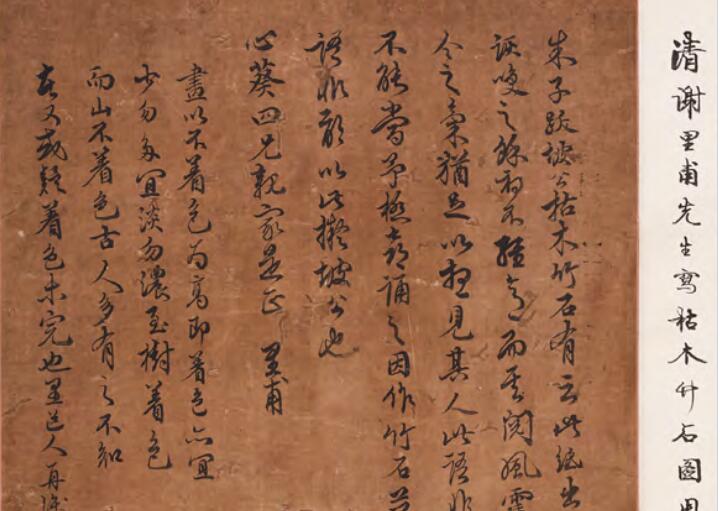 清謝里甫先生寫枯木竹石圖
朱子跋坡公枯木竹石有云此紙出
詼咲之餘初不經意而其閱風霆
今之氣猶足以想見其人此語非
不能當予極喜誦之因作竹石
語非敢以此擬坡公也
心葵四兄親家是正 里甫
畫以不着色為高即着色亦宜
少勿多宜淡勿濃至樹着色
而山不着色古人多有之不知
者又或疑着色未完也里道人再識